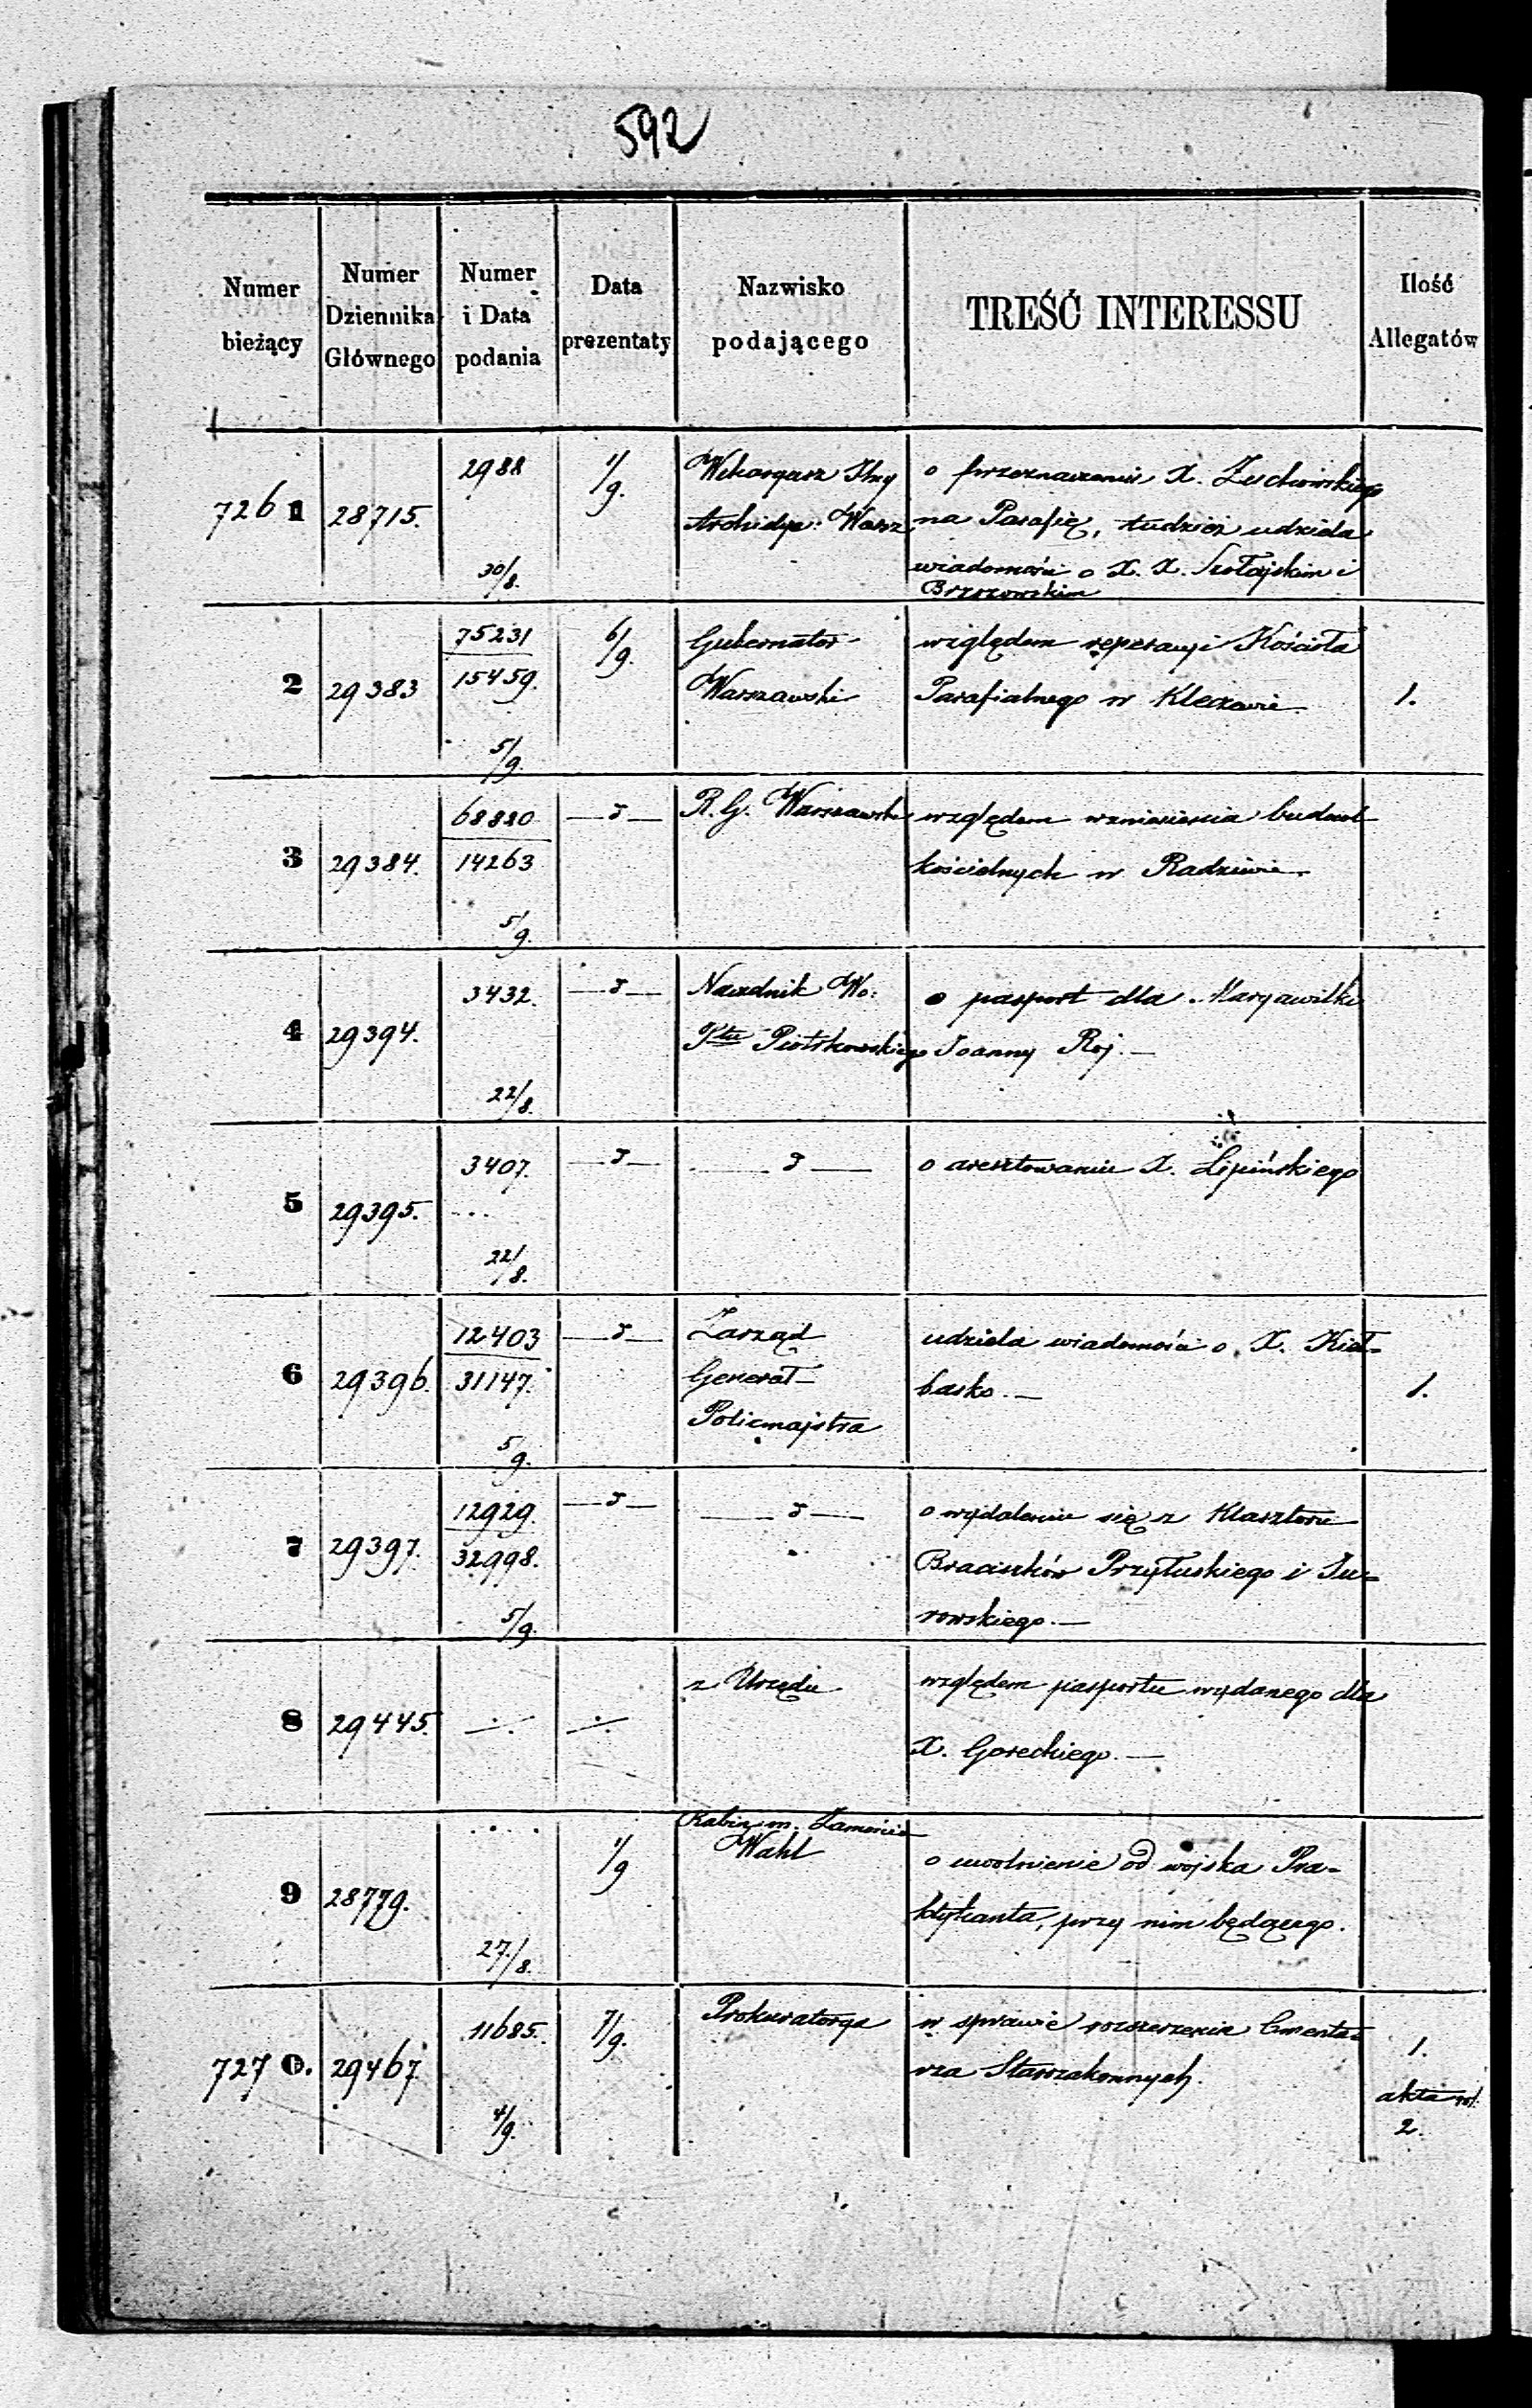 592
Numer bieżący
Numer Dziennika Głównego
Numer i Data podania
Data prezentaty
Nazwisko podającego
TREŚĆ INTERESSU
Ilość Allegatów
7261 28715. 2988 30/8. 1/9.
Archidye: Warsz.
o przeznaczenie X. Żuchowskiego
na Parafię, tudzież udziela
wiadomości o X. X. i
Brzozowskim
2 29383 75231 15459. 5/9. 6/9.
Gubernator
Warszawski
względem reperacyi Kościoła
Parafialnego w Kleczewie.
1.
3 29384. 68820 14263 5/9. —
R. G. Warszawski
względem wzniesienia budowl
kościelnych w Radziwie.
4 29394. 3432. 22/8. —
Naczelnik Wo:
Ptu Piotrkowskiego
o pasport dla Maryawitki
Joanny Roj. —
5 29395. 3407. 22/8. — —
o aresztowaniu X. Lipińskiego
6 29396. 12403 31147. 5/9. —
Zarząd
Generał
Policmajstra
udziela wiadomości o X. Kieł-
basko. —
1.
7 29397. 12929. 32998. 5/9. — —
o wydaleniu się z Klasztoru
Braciszków Przyłuskiego i Ju-
rowskiego. —
8 29445.
z Urzędu
względem pasportu wydanego dla
X. Goreckiego. —
9 28779. 27/8. 1/9
Rabin m. Zamościa
Wahl
o uwolnienie od wojska Pra-
ktykanta, przy nim będącego.
7270. 29467. 11685. 4/9. 7/9.
Prokuratorya
w sprawie rozszerzenia Cmenta-
rza Starozakonnych.
1.
akta
2.